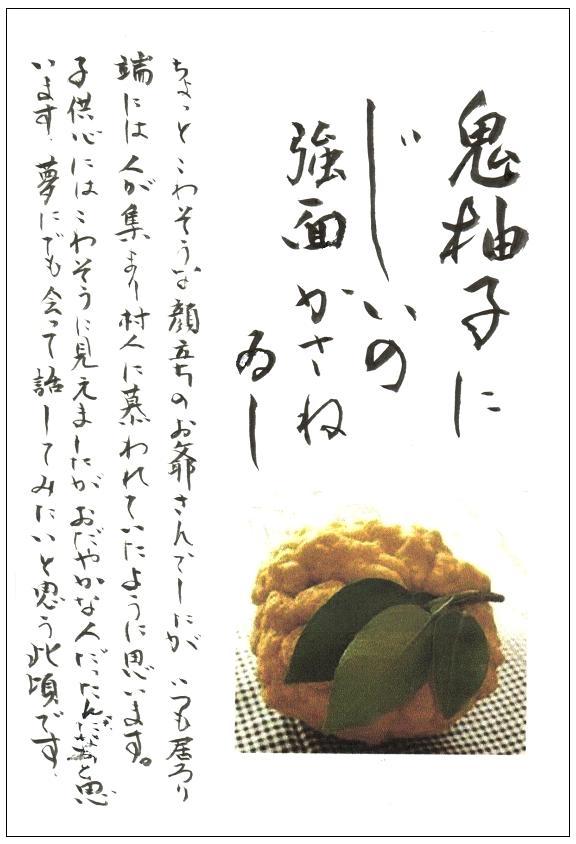 鬼柚子に
じいの
強面かさね
ゐし
ちょっとこわそうな顔立ちのお爺さんでしたが いつも居ろり
端には人が集まり村人に慕われていたように思います。
子供心にはこわそうに見えましたがおだやかな人だったんだなあと思
います。夢にでも会って話してみたいと思う此頃です。